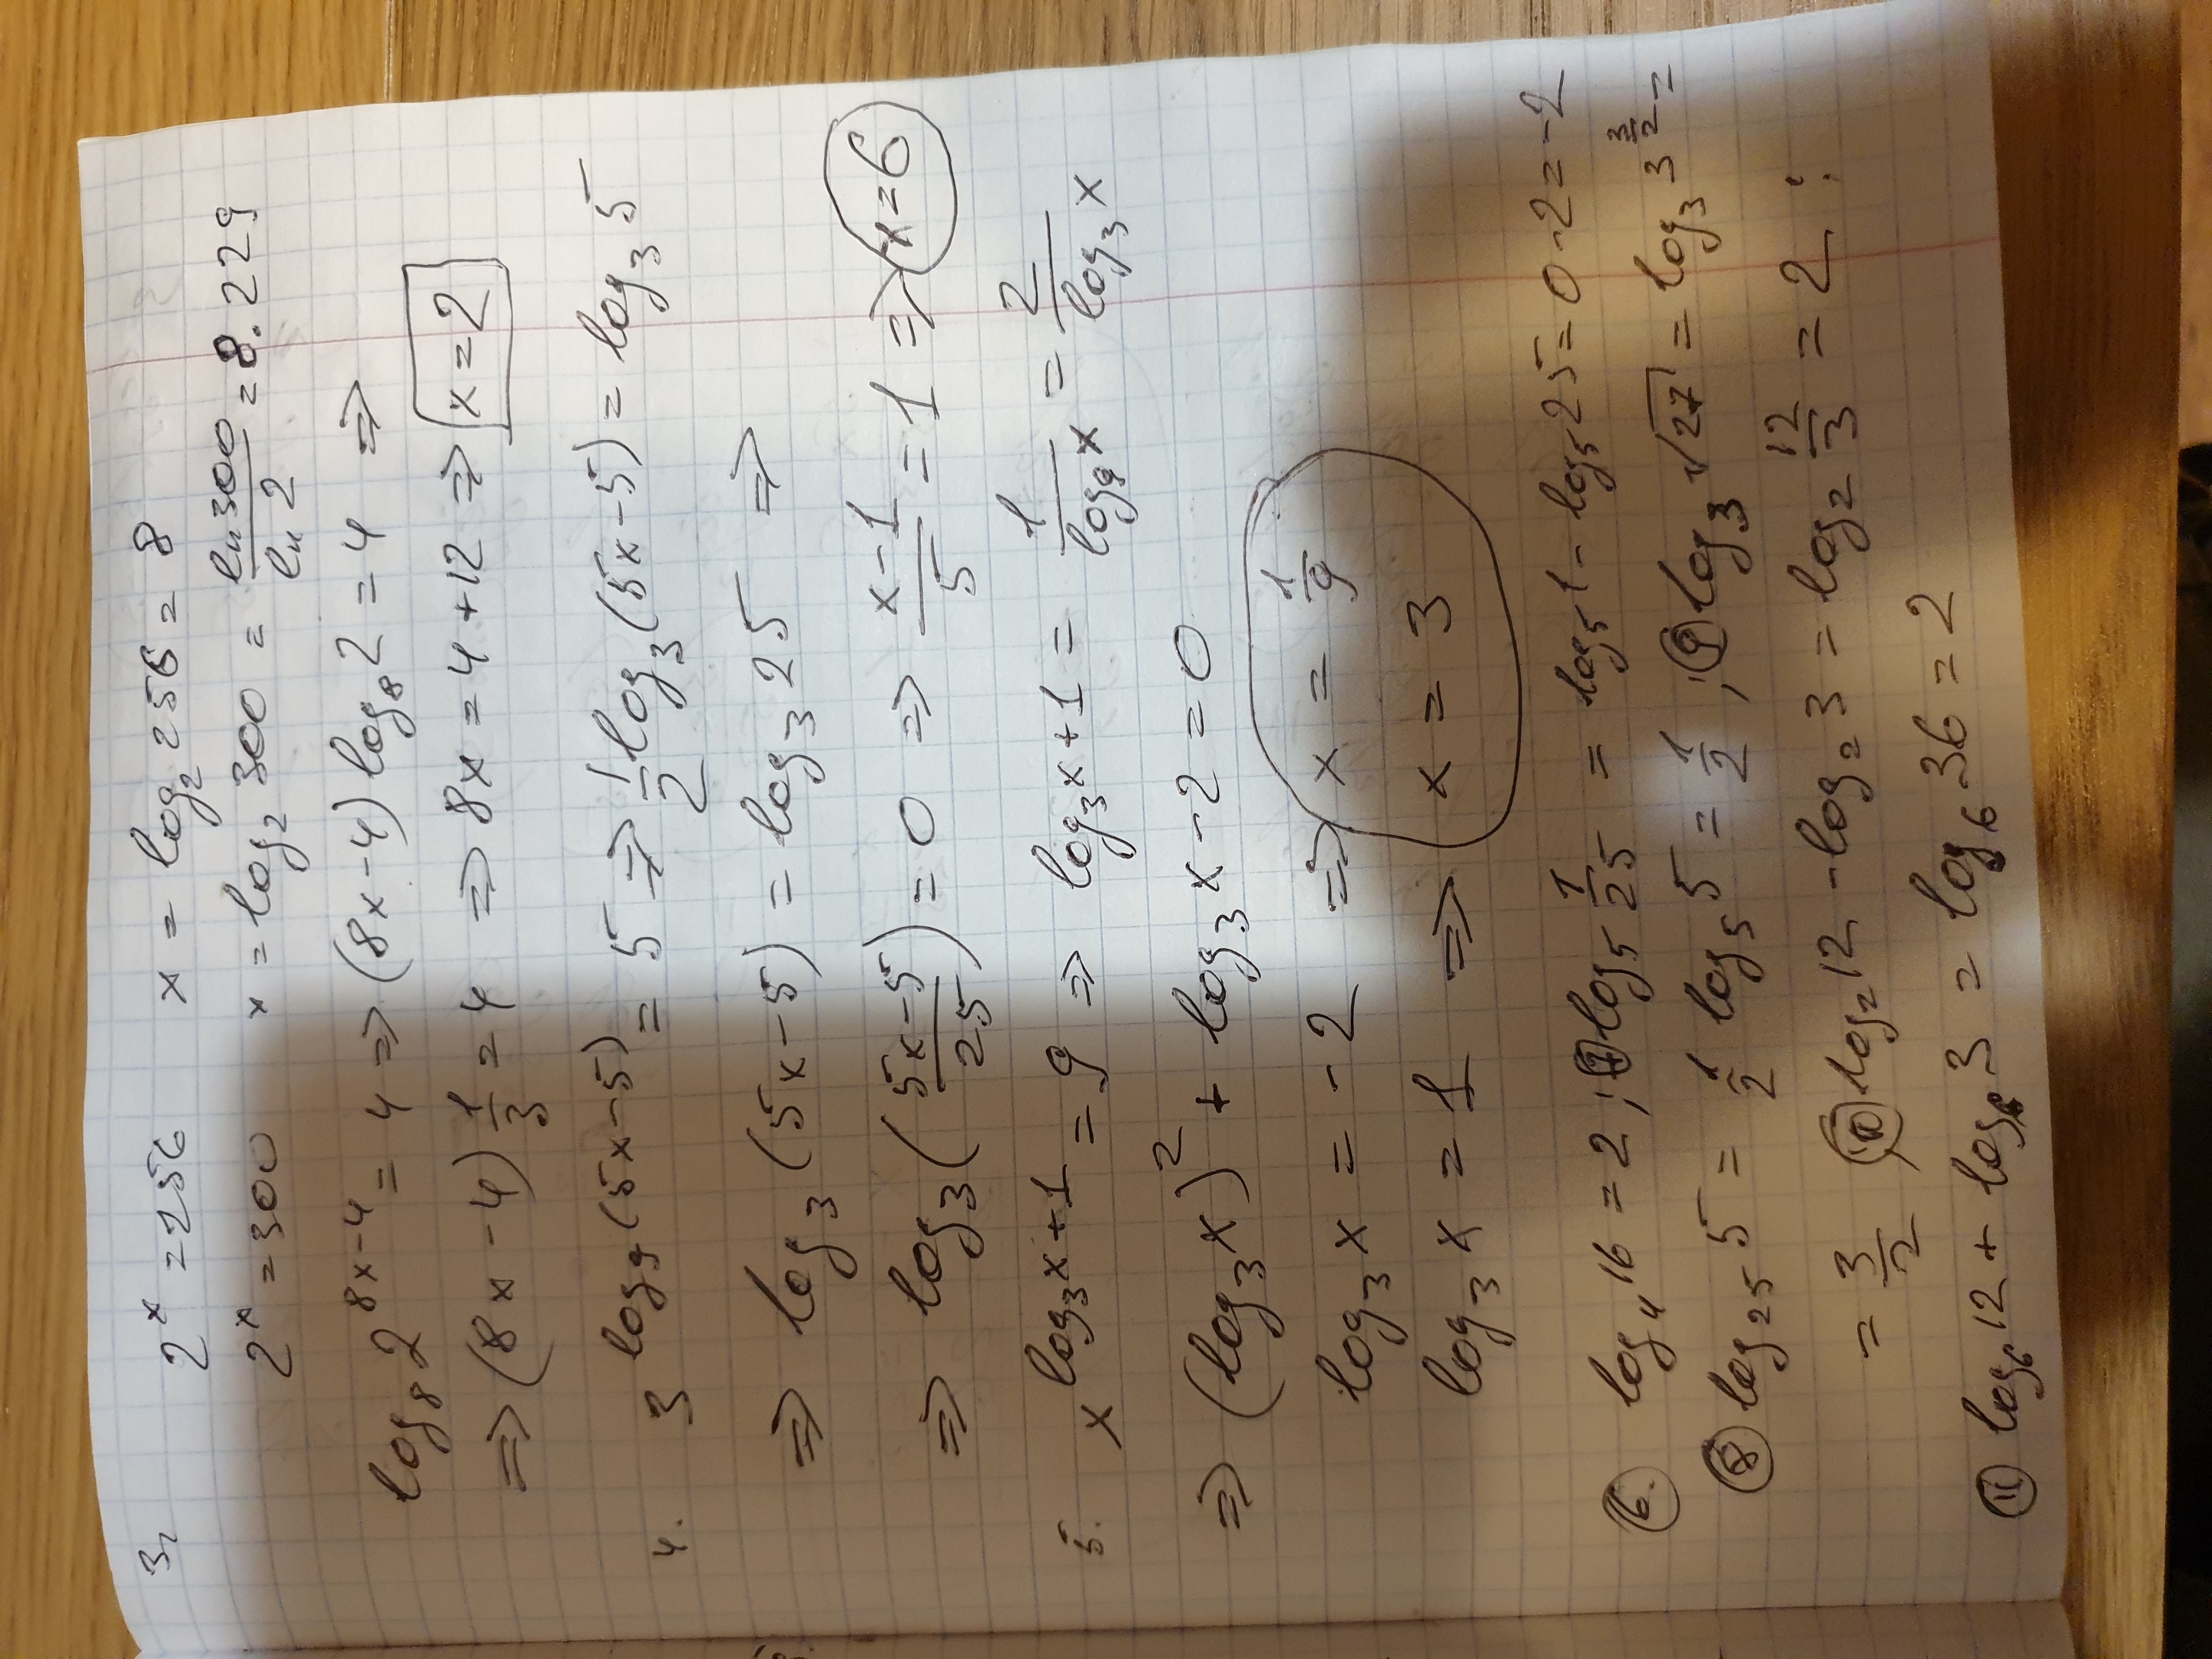 3, 2^x = 256 x = log₂ 256 = 8
2^x = 300 x = log₂ 300 = ln 300 / ln 2 = 8.229
log₈ 2^(8x-4) = 4 ⇒ (8x-4) log₈ 2 = 4 ⇒
⇒ (8x-4) 1/3 = 4 ⇒ 8x = 4+12 ⇒ x = 2
4. 3^(log₉(5x-5)) = 5 ⇒ 1/2 log₃(5x-5) = log₃ 5
⇒ log₃(5x-5) = log₃ 25 ⇒
⇒ log₃((5x-5)/25) = 0 ⇒ (x-1)/5 = 1 ⇒ x=6
5. x^(log₃x+1) = 9 ⇒ log₃x+1 = 1/log₉x = 2/log₃x
⇒ (log₃x)² + log₃x - 2 = 0
log₃x = -2 ⇒ x = 1/9
log₃x = 1 ⇒ x = 3
6. log₄ 16 = 2 ; 7 log₅ 1/25 = log₅ 1 - log₅ 25 = 0-2 = -2
8 log₂₅ 5 = 1/2 log₅ 5 = 1/2 ; 9 log₃ √27 = log₃ 3^(3/2) =
= 3/2 , 10 log₂ 12 - log₂ 3 = log₂ 12/3 = 2 ;
11 log₆ 12 + log₆ 3 = log₆ 36 = 2